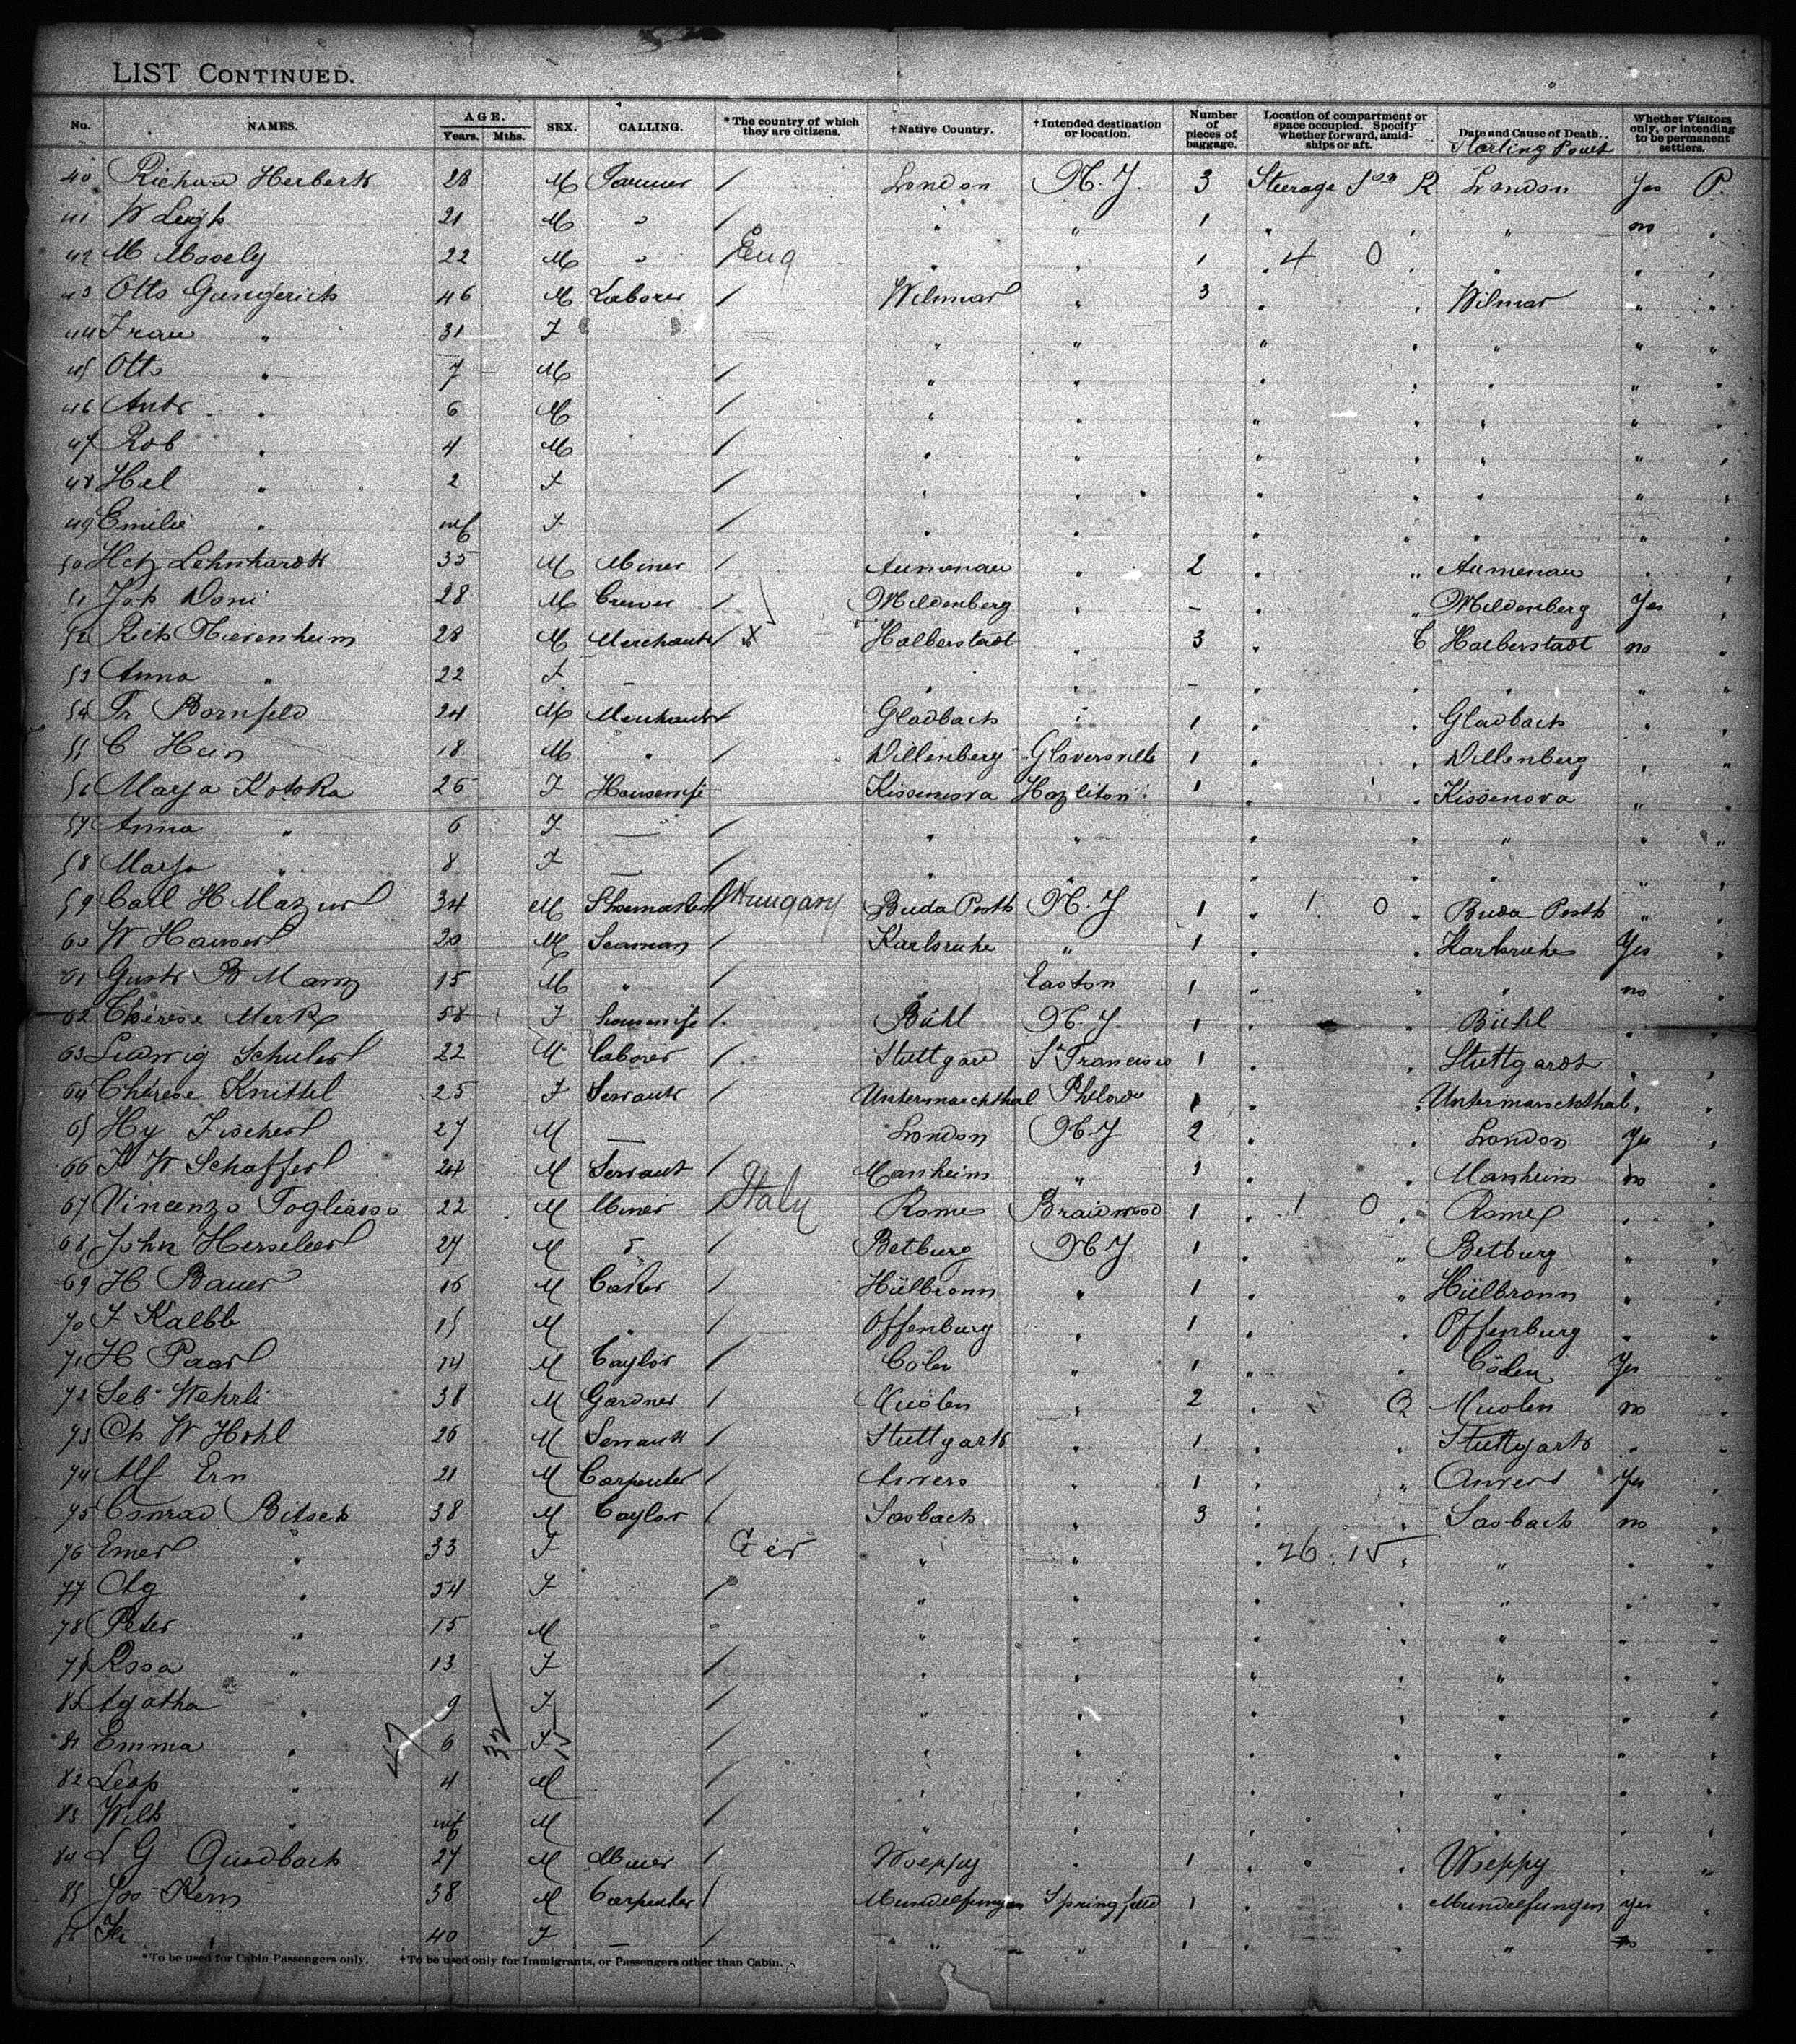 LIST CONTINUED.
No. NAMES. AGE. Years. Mths. SEX. CALLING. *The country of which they are citizens. †Native Country. †Intended destination or location. Number of pieces of baggage. Location of compartment or space occupied. Specify whether forward, amidships or aft. Date and Cause of Death. Starting Point Whether Visitors only, or intending to be permanent settlers.
40 Richard Herbert 28 M Farmer / London N.Y. 3 Steerage R London Yes P.
41 W Leigh 21 M " / " " 1 " " " no "
42 M Mosely 22 M " / Eng " " 1 " 4 0 " " " "
43 Otto Gungerich 46 M Laborer / Wilmar " 3 " " Wilmar " "
44 Frau " 31 F " " " " " " "
45 Otto " 7 M / " " " " " " "
46 " 6 M / " " " " " " "
47 Rob " 4 M / " " " " " " "
48 Hel " 2 F / " " " " " " "
49 Emilie " inf F / " " " " " " "
50 Lehnhardt 35 M Miner / Aumenau " 2 " " Aumenau " "
51 Jos Doni 28 M / Mildenberg " - " " Mildenberg Yes "
52 Rich Nierenheim 28 M Merchant / x Halberstadt " 3 " Halberstadt no "
53 Anna " 22 F - " " - " " " " "
54 Fr Bornfeld 24 M Merchant / Gladbach " 1 " " Gladbach " "
55 C Hein 18 M " / Willenberg Gloversville 1 " " Willenberg " "
56 Marya Kotska 26 F Housewife Kissenova Hazliton 1 " " Kissenova " "
57 Anna " 6 F — / " " " " " " "
58 Marya " 8 F — / " " " " " " "
59 Carl H Mazur 34 M Shoemaker / Hungary Buda Pesth N.Y 1 " 1 0 " Buda Pesth " "
60 W Hauser 20 M Seaman / Karlsruhe " 1 " " Karlsruhe Yes "
61 Gust B Marx 15 M " / " Easton 1 " " " no "
62 Therese Merk 58 F housewife / Bühl N.Y. 1 " " Bühl " "
63 Ludwig Schuler 22 M laborer / Stuttgard S Francisco 1 " " Stuttgardt " "
64 Therese Knittel 25 F Servant / Untermarchthal Philada 1 " " Untermarchthal " "
65 Hy Fischer 27 M — London N.Y 2 " " London Yes "
66 F W Schaffer 24 M Servant / Manheim " 1 " " Manheim no "
67 Vincenzo Togliasso 22 M Miner Italy Rome Braidwood 1 " 1 0 " Rome " "
68 John Herseler 27 M " / Betburg N.Y 1 " " Betburg " "
69 H Bauer 16 M / Hülbronn " 1 " " Hülbronn " "
70 F Kalbb 15 M " / Offenburg " 1 " " Offenburg " "
71 H Paar 14 M Taylor / Cöln " 1 " " Cöln Yes "
72 Seb Wehrli 38 M Gardner / Nuolen " 2 " Nuolen no "
73 Ch W Hohl 26 M Servant / Stuttgart " 1 " " Stuttgart " "
74 Alf Ern 21 M Carpenter / Anvers " 1 " " Anvers Yes "
75 Conrad Bitsch 38 M Taylor / Sasbach " 3 " " Sasbach no "
76 " 33 F Ger " " " 26 15 " " " "
77 Ag " 54 F / " " " " " " "
78 Peter " 15 M " " " " " " "
79 Rosa " 13 F / " " " " " " "
80 Agatha " 9 F / " " " " " " "
81 Emma " 6 F / " " " " " " "
82 Leop " 4 M / " " " " " " "
83 Wilh " inf M / " " " " " " "
84 G Quadbach 27 M Miner / Woeppy " 1 " " Woeppy " "
85 Jos Kern 38 M Carpenter / Mundelfingen Springfield 1 " " Mundelfingen Yes "
86 40 F — / " " " " " " no "
*To be used for Cabin Passengers only. †To be used only for Immigrants, or Passengers other than Cabin.